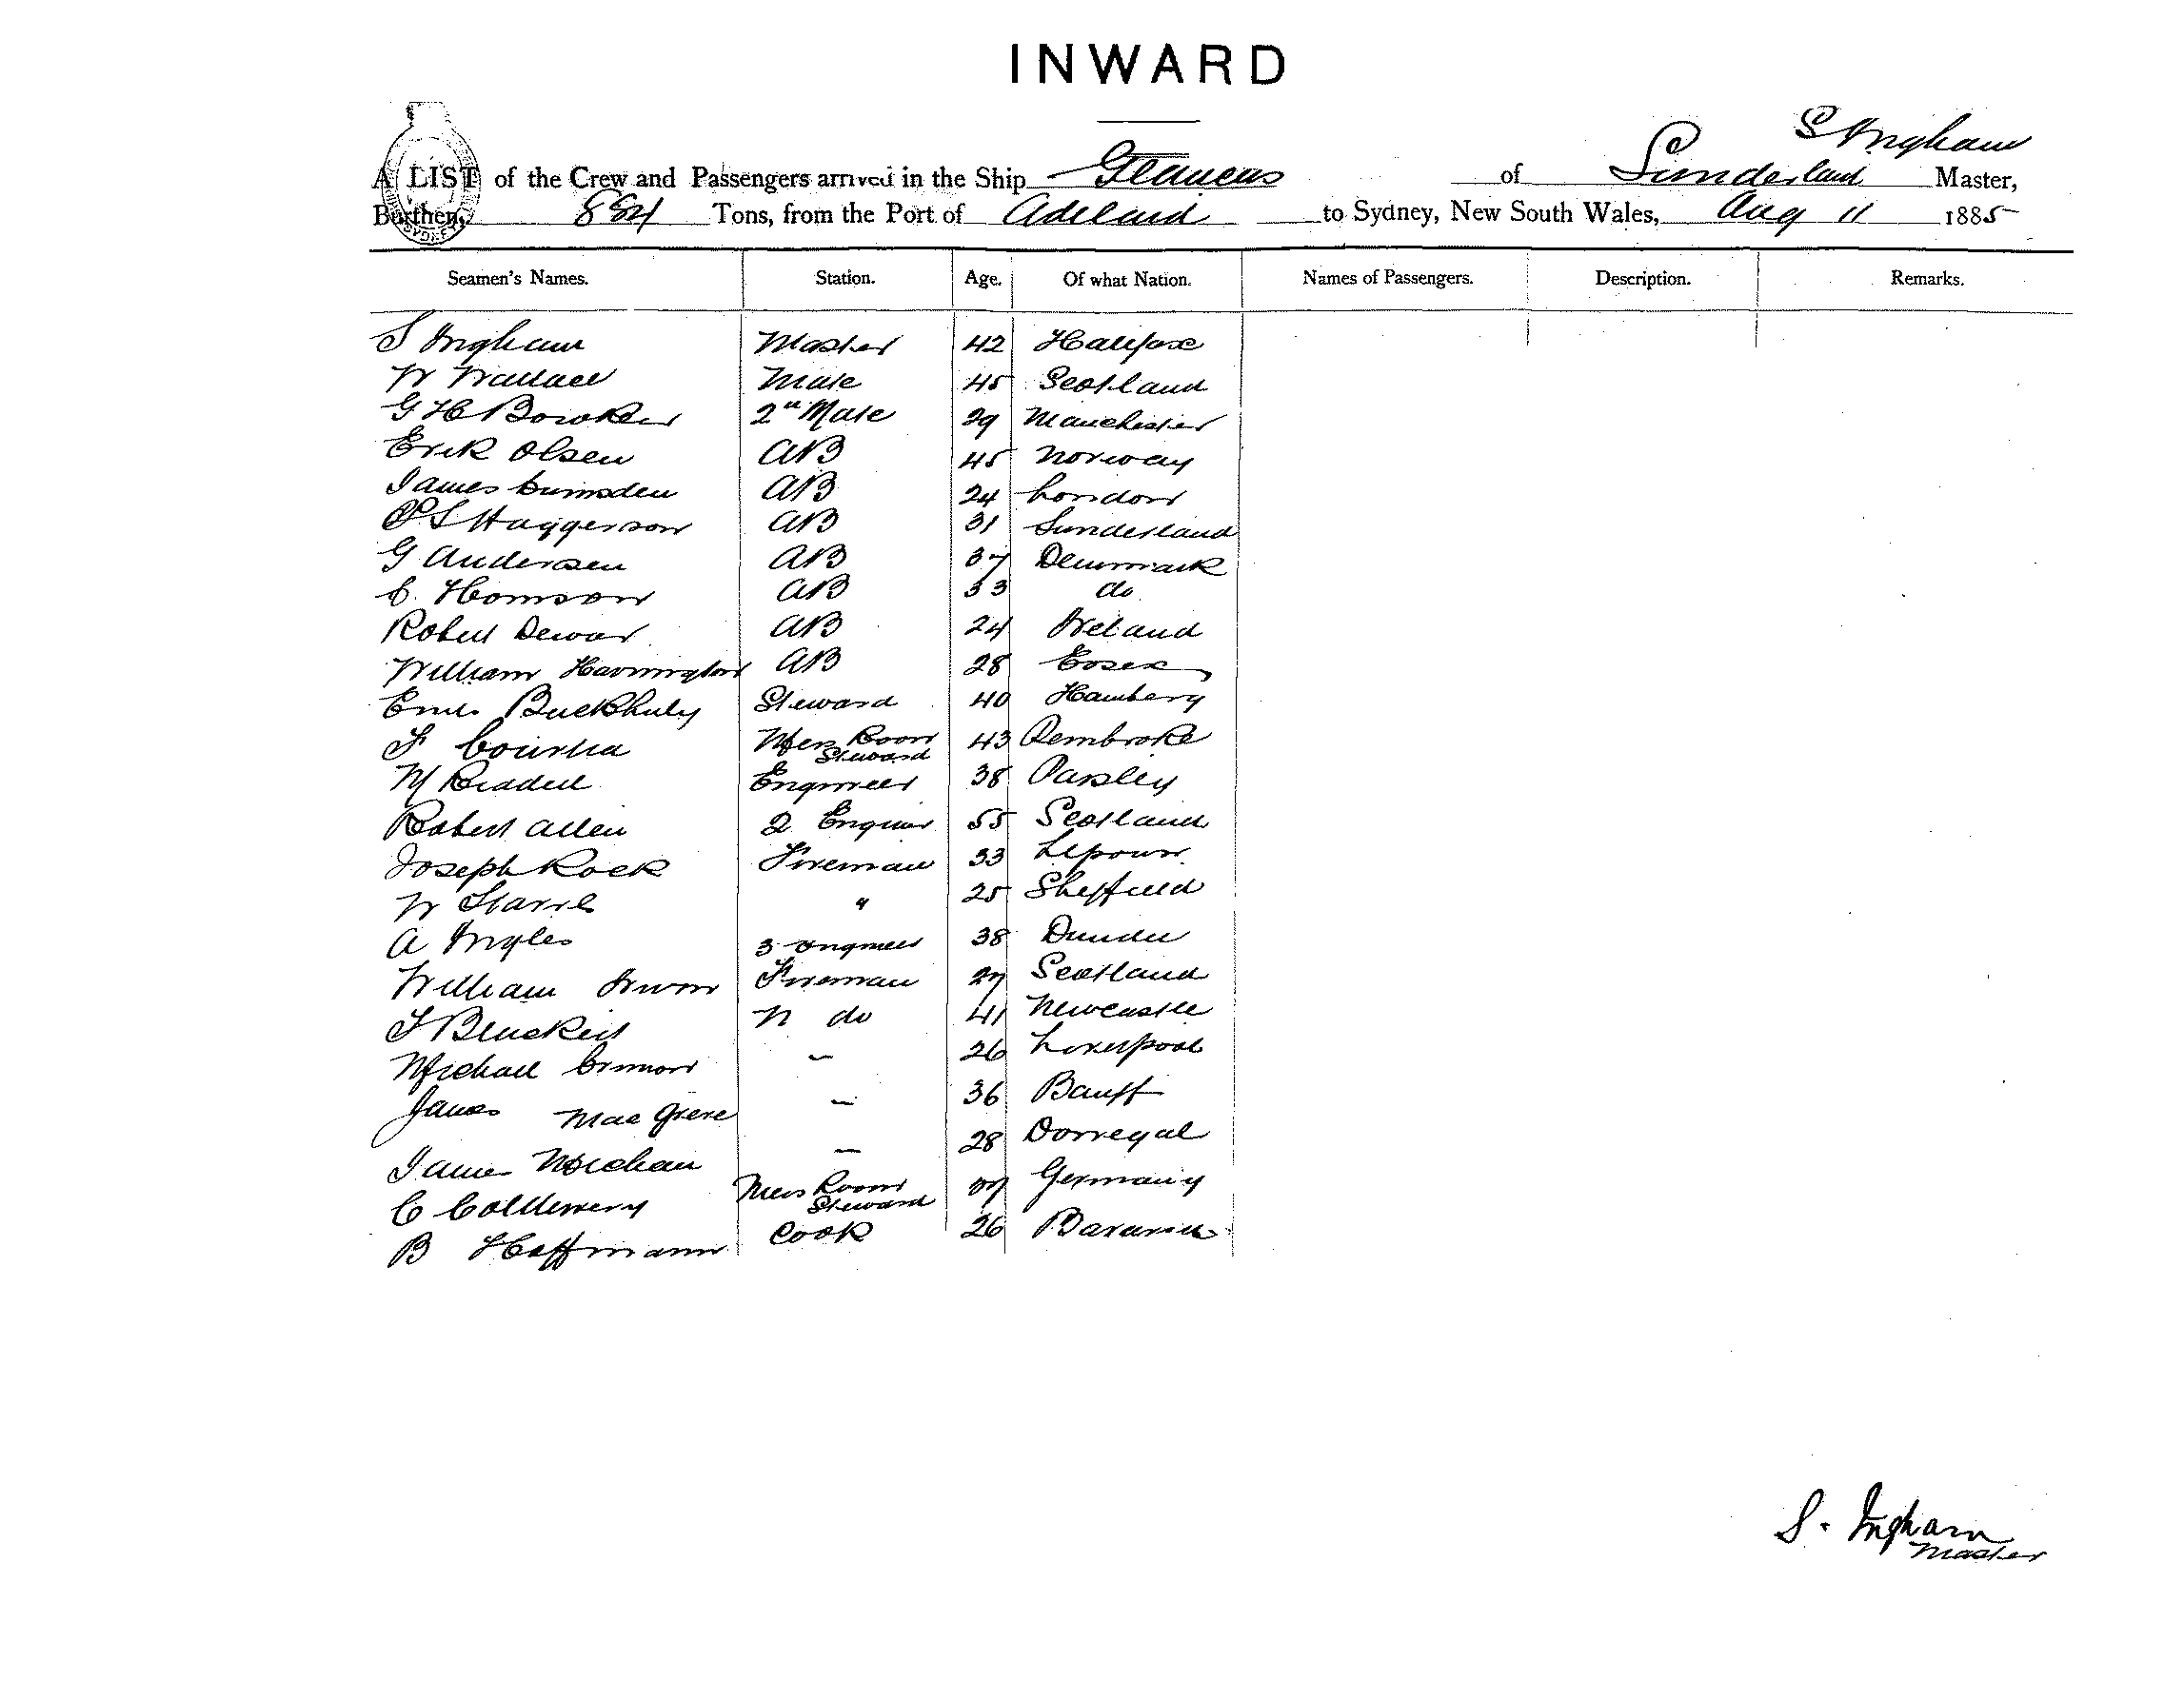 INWARD
S Ingham
A LIST of the Crew and Passengers arrived in the Ship Glaucus of Sunderland Master,
Burthen, 884 Tons, from the Port of Adelaid to Sydney, New South Wales, Aug 11 1885
Seamen's Names. Station. Age. Of what Nation. Names of Passengers. Description. Remarks.
S Ingham Master 42 Halifax
W Wallace Mate 45 Scotland
G H Bowker 2nd Mate 29 Manchester
Erik Olsen AB 45 Norway
James Lumsden AB 24 London
P S Haggerson AB 31 Sunderland
G Andersen AB 37 Denmark
C. Homson AB 33 do
Robert Dewar AB 24 Ireland
William Harrington AB 28 Essex
Steward 40 Hamberg
F Mess Room Steward 43 Pembroke
M Engineer 38 Paisley
Robert Allen 2 Engineer 55 Scotland
Joseph Rock Fireman 33
W " 25 Sheffield
A Ingles 3 Engineer 38 Dundee
William Irwin Fireman 27 Scotland
do 41 Newcastle
Michael 26 Liverpool
James 36 Banff
James 28 Donegal
C Mess Room Steward 37 Germany
B Hoffmann Cook 26 Bavaria
S. Ingham
Master